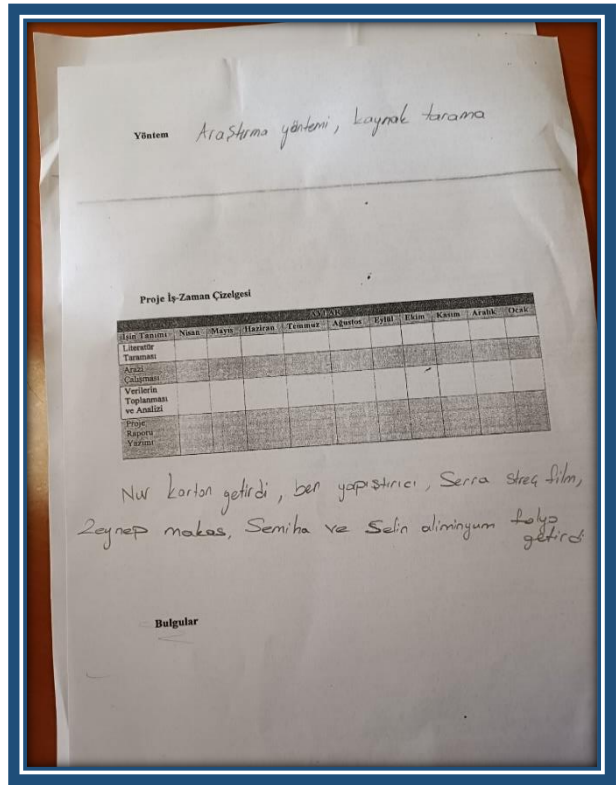 Yöntem Araştırma yöntemi, kaynak tarama
Proje İş-Zaman Çizelgesi
AYLAR
İşin Tanımı Nisan Mayıs Haziran Temmuz Ağustos Eylül Ekim Kasım Aralık Ocak
Literatür
Taraması
Arazi
Çalışması
Verilerin
Toplanması
ve Analizi
Proje
Raporu
Yazımı
Nur karton getirdi, ben yapıştırıcı, Serra streç film,
Zeynep makas, Semiha ve Selin aliminyum folyo
getirdi
Bulgular